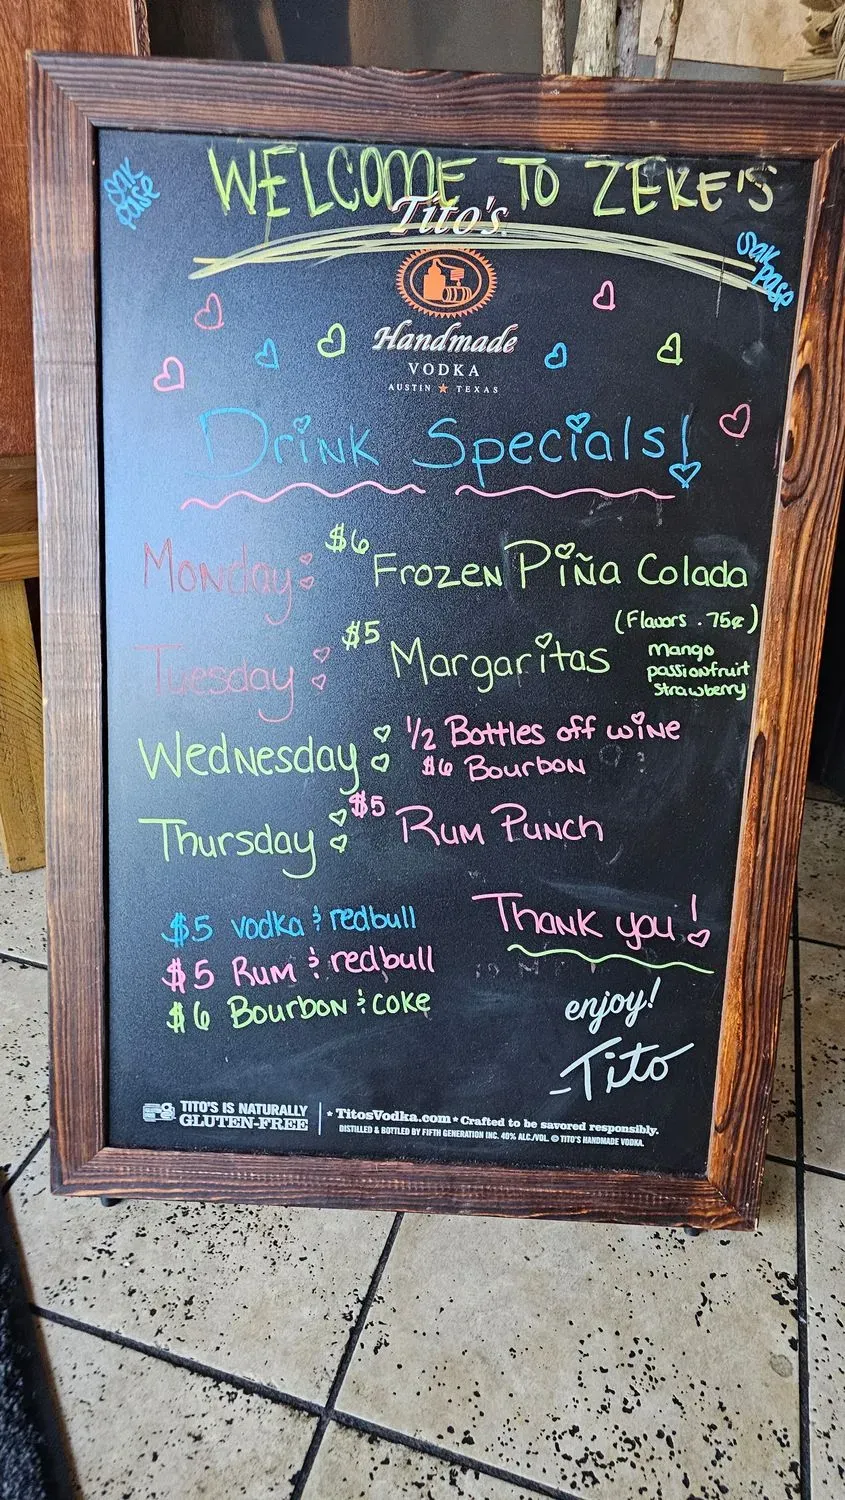 WELCOME TO ZEKE'S
Sak pase
Sak pase
Tito's
Handmade
VODKA
AUSTIN ★ TEXAS
Drink Specials!
Monday: $6 Frozen Piña Colada
Tuesday: $5 Margaritas
(Flavors .75¢)
mango
passionfruit
strawberry
Wednesday: 1/2 Bottles off wine
$6 Bourbon
Thursday: $5 Rum Punch
$5 vodka & redbull
$5 Rum & redbull
$6 Bourbon & coke
Thank you!
enjoy!
-Tito
TITO'S IS NATURALLY
GLUTEN-FREE
★ TitosVodka.com ★ Crafted to be savored responsibly.
DISTILLED & BOTTLED BY FIFTH GENERATION INC. 40% ALC./VOL. © TITO'S HANDMADE VODKA.